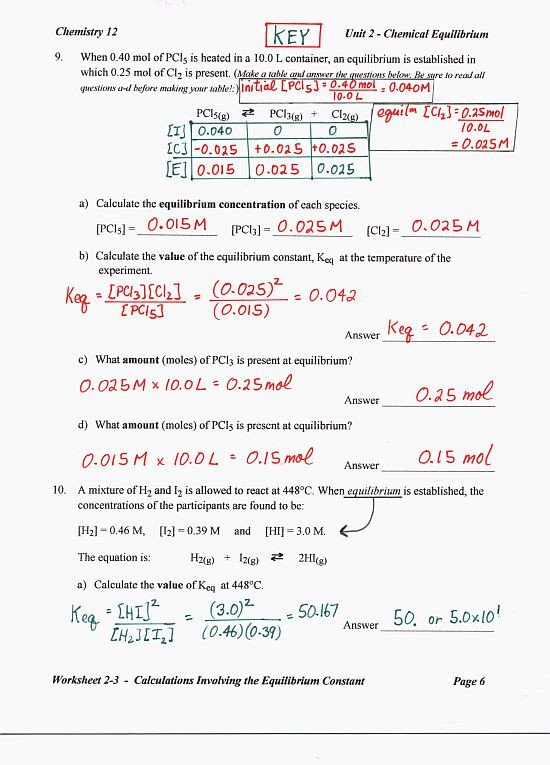 Chemistry 12 KEY Unit 2 - Chemical Equilibrium
9. When 0.40 mol of PCl₅ is heated in a 10.0 L container, an equilibrium is established in
which 0.25 mol of Cl₂ is present. (Make a table and answer the questions below. Be sure to read all
questions a-d before making your table!:) Initial [PCl₅] = 0.40 mol / 10.0 L = 0.040 M
PCl₅(g) ⇄ PCl₃(g) + Cl₂(g)
equilm [Cl₂] = 0.25 mol / 10.0 L
= 0.025 M
[I] 0.040 0 0
[C] -0.025 +0.025 +0.025
[E] 0.015 0.025 0.025
a) Calculate the equilibrium concentration of each species.
[PCl₅] = 0.015 M [PCl₃] = 0.025 M [Cl₂] = 0.025 M
b) Calculate the value of the equilibrium constant, Keq at the temperature of the
experiment.
Keq = [PCl₃][Cl₂] / [PCl₅] = (0.025)² / (0.015) = 0.042
Answer Keq = 0.042
c) What amount (moles) of PCl₃ is present at equilibrium?
0.025 M x 10.0 L = 0.25 mol
Answer 0.25 mol
d) What amount (moles) of PCl₅ is present at equilibrium?
0.015 M x 10.0 L = 0.15 mol Answer 0.15 mol
10. A mixture of H₂ and I₂ is allowed to react at 448°C. When equilibrium is established, the
concentrations of the participants are found to be:
[H₂] = 0.46 M, [I₂] = 0.39 M and [HI] = 3.0 M.
The equation is: H₂(g) + I₂(g) ⇄ 2HI(g)
a) Calculate the value of Keq at 448°C.
Keq = [HI]² / [H₂][I₂] = (3.0)² / (0.46)(0.39) = 50.167
Answer 50. or 5.0x10¹
Worksheet 2-3 - Calculations Involving the Equilibrium Constant Page 6